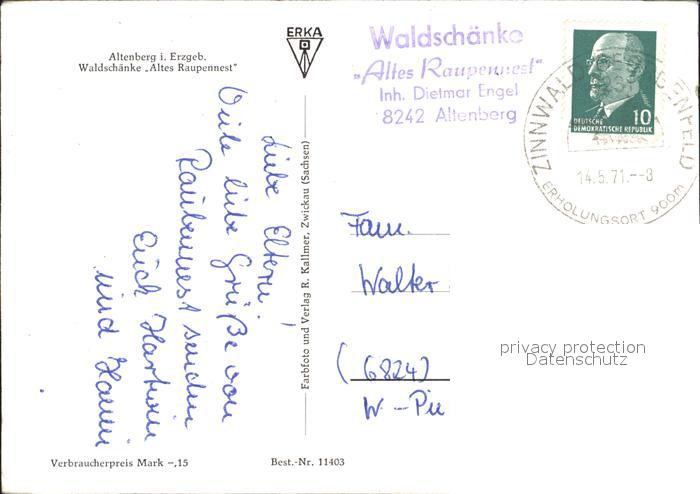 Altenberg i. Erzgeb.
Waldschänke „Altes Raupennest"
ERKA
Waldschänke
„Altes Raupennest"
Inh. Dietmar Engel
8242 Altenberg
10
DEUTSCHE
DEMOKRATISCHE REPUBLIK
14.5.71.--8
ERHOLUNGSORT 900m
Liebe Eltern!
Viele liebe Grüße von
Raubennest senden
Euch Hartwin
und Hanni
Farbfoto und Verlag R. Kallmer, Zwickau (Sachsen)
Fam.
Walter
(6824)
privacy protection
Datenschutz
Verbraucherpreis Mark -,15
Best.-Nr. 11403